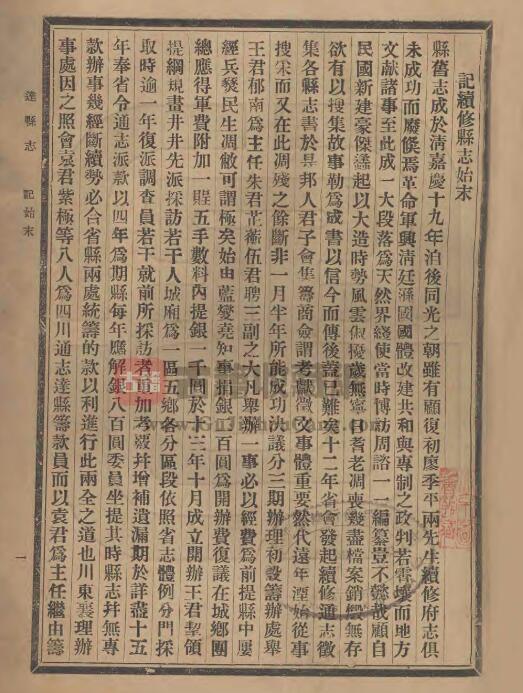 記續修縣志始末
縣舊志成於淸嘉慶十九年洎後同光之朝雖有顧復初廖季平兩先生續修府志俱
未成功而廢倐焉革命軍興淸廷遜國國體改建共和與專制之政判若霄壤而地方
文獻諸事至此成一大段落爲天然界綫使當時博訪周諮一一編纂豈不懿哉顧自
民國新建豪傑蠭起以大造時勢風雲俶擾歲無寧日耆老凋喪幾盡檔案銷燬無存
欲有以搜集故事勒爲成書以信今而傳後蓋已難矣十二年省會發起續修通志徵
集各縣志書於是邦人君子會集籌商僉謂考獻徵文事體重要然代遠年湮始從事
搜采而又在此凋殘之餘斷非一月半年所能成功決議分三期辦理初設籌辦處舉
王君郁南爲主任朱君芷蘅伍君聘三副之大凡舉辦一事必以經費爲前提縣中屢
經兵燹民生凋敝可謂極矣始由藍變堯知事捐銀一百圓爲開辦費復議在城鄉團
總應得軍費附加一賍五手數料內提銀一千圓於十三年十月成立開辦王君挈領
提綱規畫井井先派採訪若干人城廂爲一區五鄉各分區段依照省志體例分門採
取時逾一年復派調查員若干就前所採訪者重加考覈幷增補遺漏期於詳盡十五
年奉省令通志派款以四年爲期縣每年應解銀八百圓委員坐提其時縣志幷無專
款辦事幾經斷續勢必合省縣兩處統籌的款以利進行此兩全之道也川東襄理辦
事處因之照會袁君紫極等八人爲四川通志達縣籌款員而以袁君爲主任繼由籌
達縣志
記始末
一